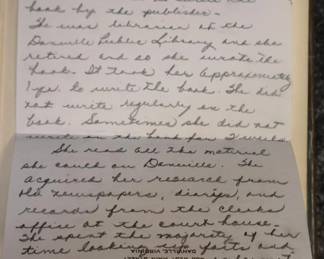 book by the publisher.
She was librarian at the
Danville Public Library and she
retired and so she wrote the
book. It took her approximately
1 yr. to write the book. She did
not write regularly on the
book. Sometimes she did not
write on the book for 2 weeks.
She read all the material
she could on Danville. She
acquired her research from
old newspapers, diarys, and
records from the clerks
office at the court house.
She spent the majority of her
time looking up facts and
DANVILLE, VIRGINIA